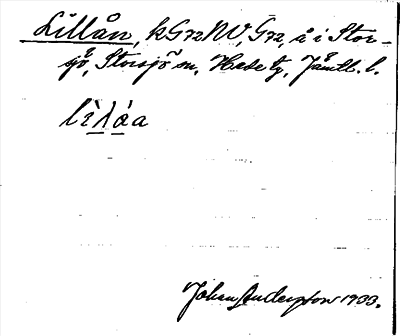 Lillån, kGr2NV, Gr2, å i Stor-
sjö, Storsjö sn, Hede tg, Jämtl. l.
lìlåa
Johan Anderson 1933.